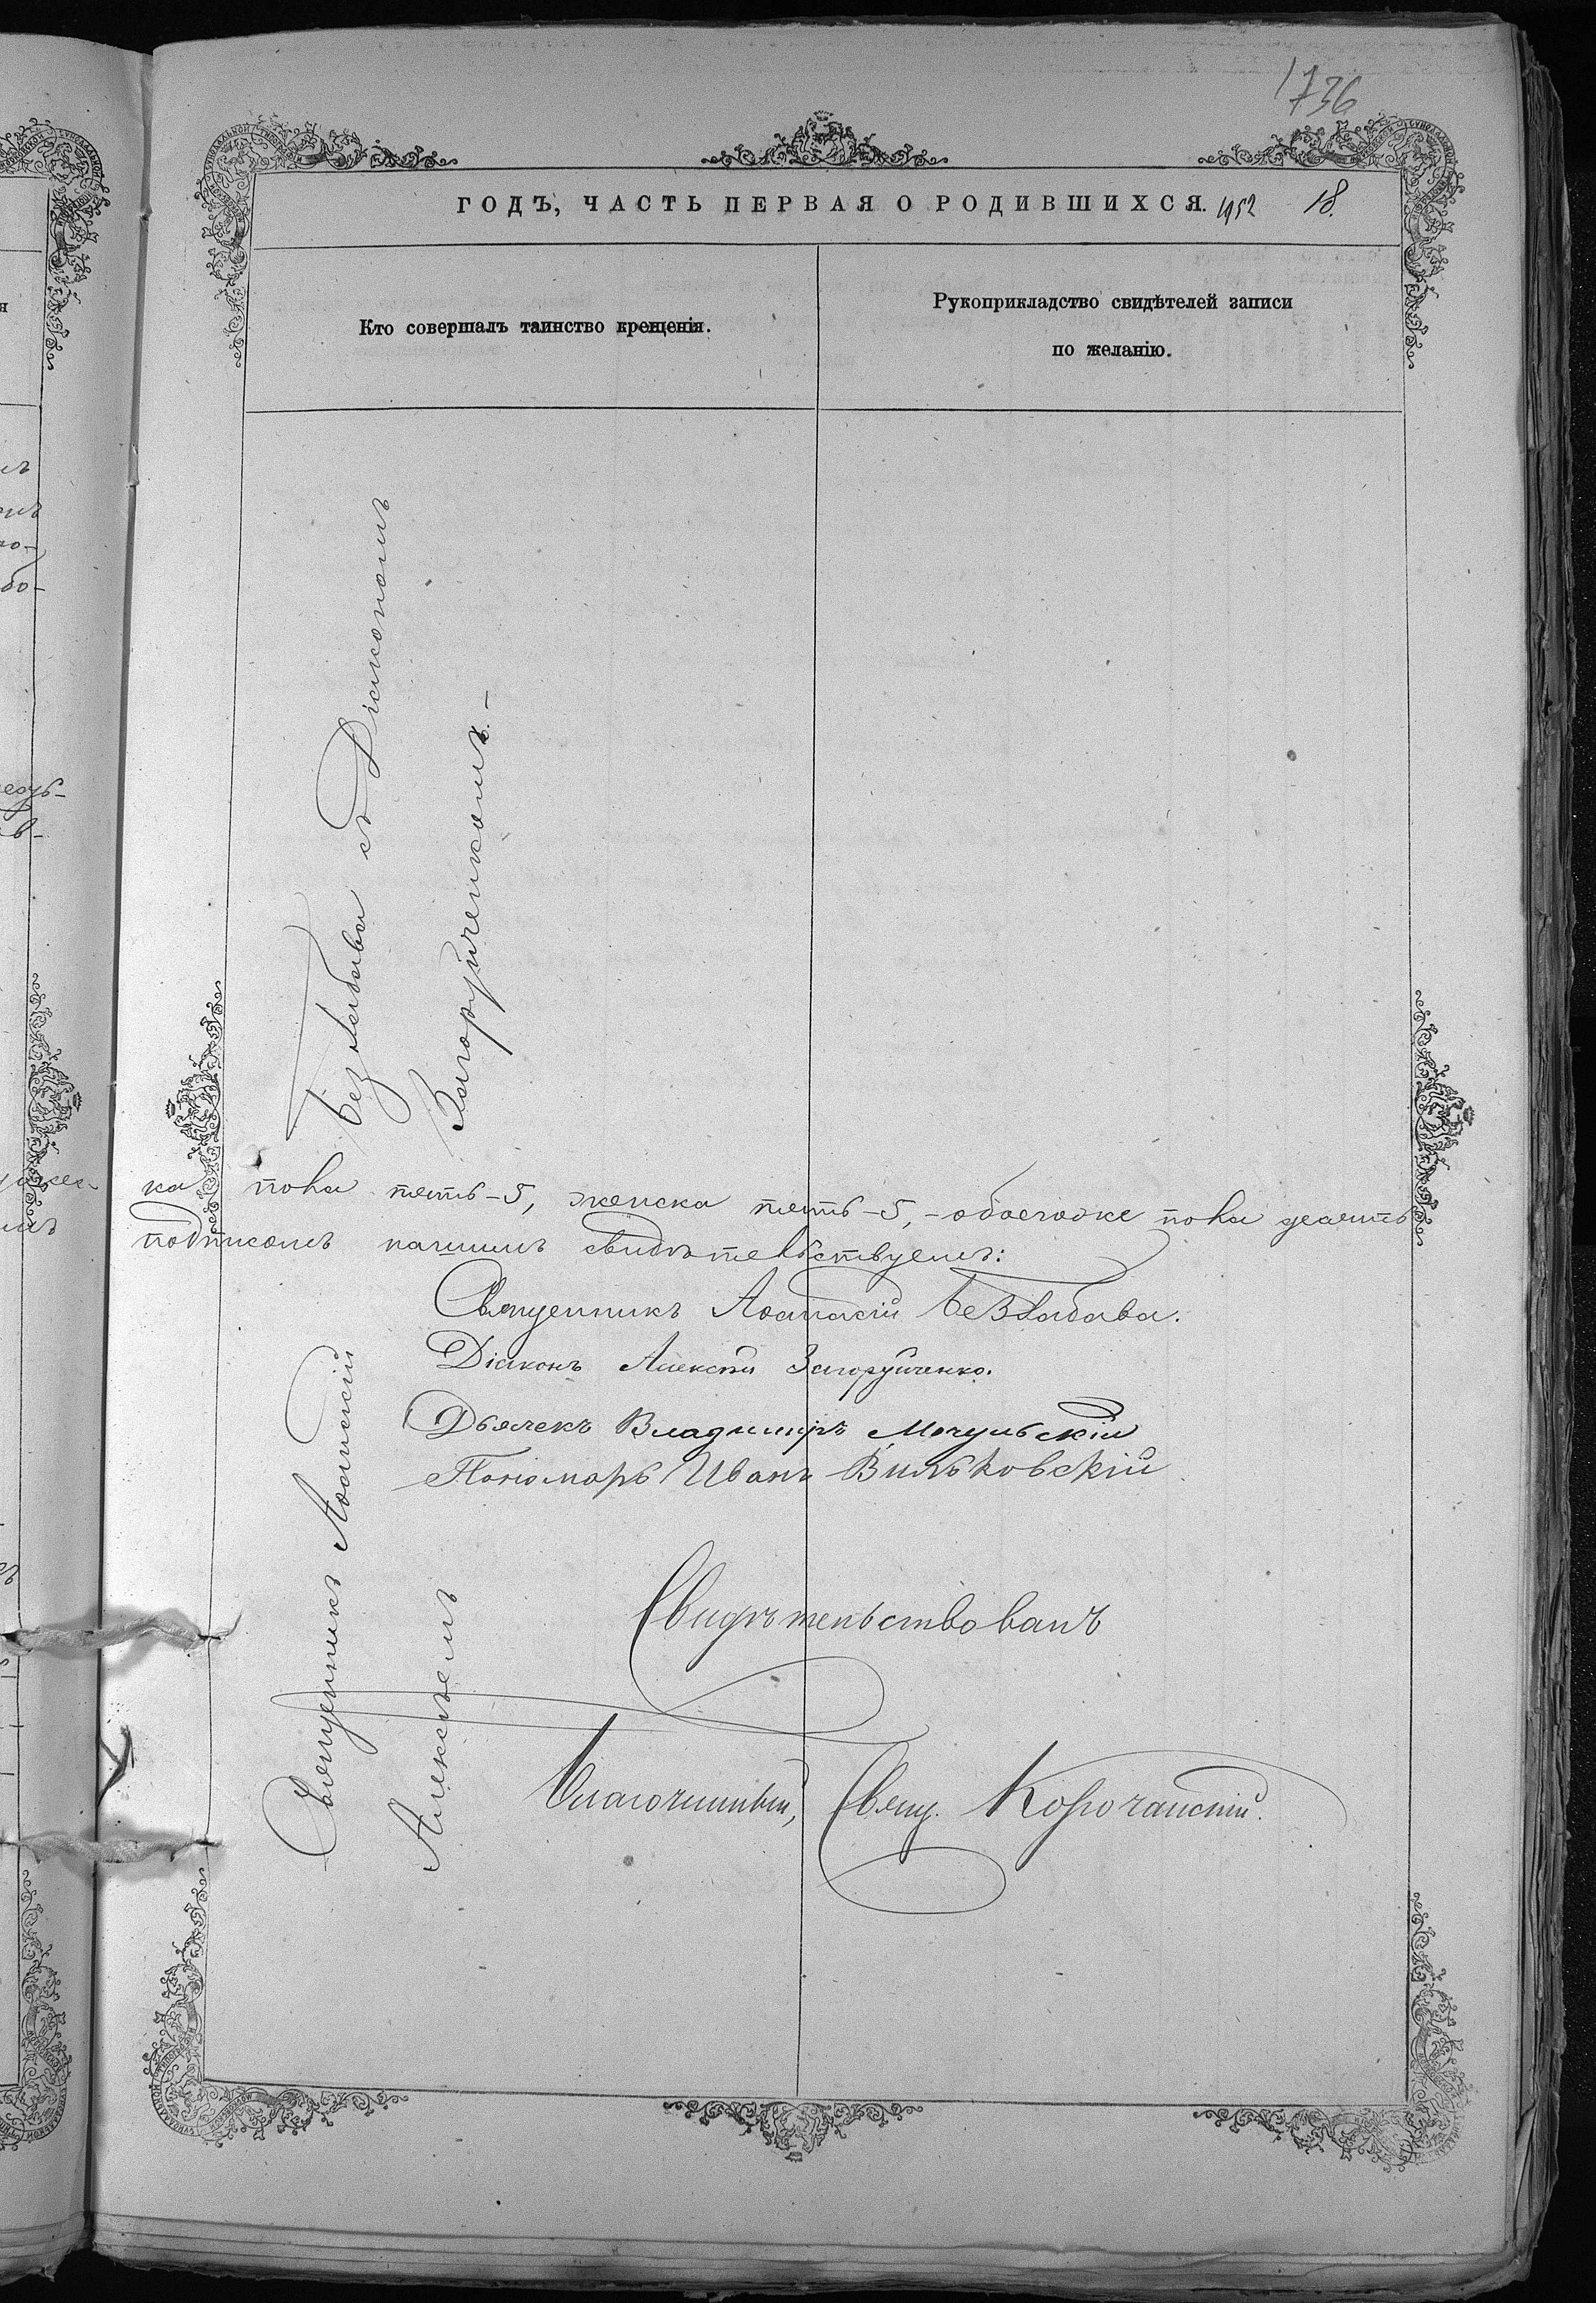 1736
ГОДЪ, ЧАСТЬ ПЕРВАЯ О РОДИВШИХСЯ. 1952 18.
Кто совершалъ таинство крещенія.
Рукоприкладство свидѣтелей записи
по желанію.
Священникъ Аѳанасій Безклабава съ Діакономъ
Алексѣемъ Загоруйченкомъ. –
ка пола пять – 5, женска пять – 5, – обоегоже пола десять
подписомъ нашимъ свидѣтельствуемъ:
Священникъ Аѳанасій
Діаконъ Алексѣй Загоруйченко.
Дьячекъ Владимиръ Мочульскій
Пономарь Иванъ Вильковскій
Свидѣтельствовалъ
Благочинный, Свящ. Корочанскій.